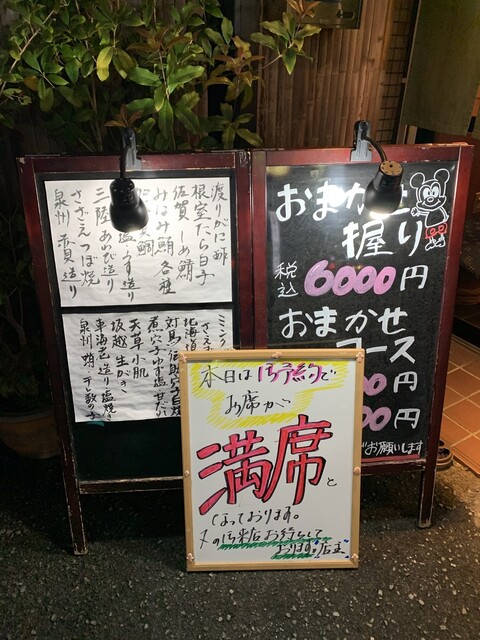 渡りがに酢
根室たら白子
佐賀〆鯖
みなみ鮪各種
三陸あわび造り
さざえつぼ焼
泉州赤貝造り
対馬伝助穴子白焼
煮穴子ゆず塩ぜたい
天草小肌
坂越生がき
車海老造り塩焼き
おまかせ
握り
税込6000円
おまかせ
コース
00円
00円
お願いします
本日は御予約で
お席が
満席と
なっております。
又の御来店お待ちして
おります。店主